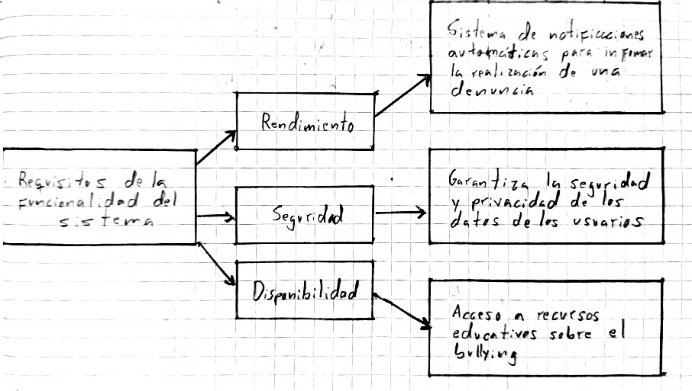 Requisitos de la
funcionalidad del
sistema
Rendimiento
Sistema de notificaciones
automáticas para informar
la realización de una
denuncia
Seguridad
Garantiza la seguridad
y privacidad de los
datos de los usuarios
Disponibilidad
Acceso a recursos
educativos sobre el
bullying